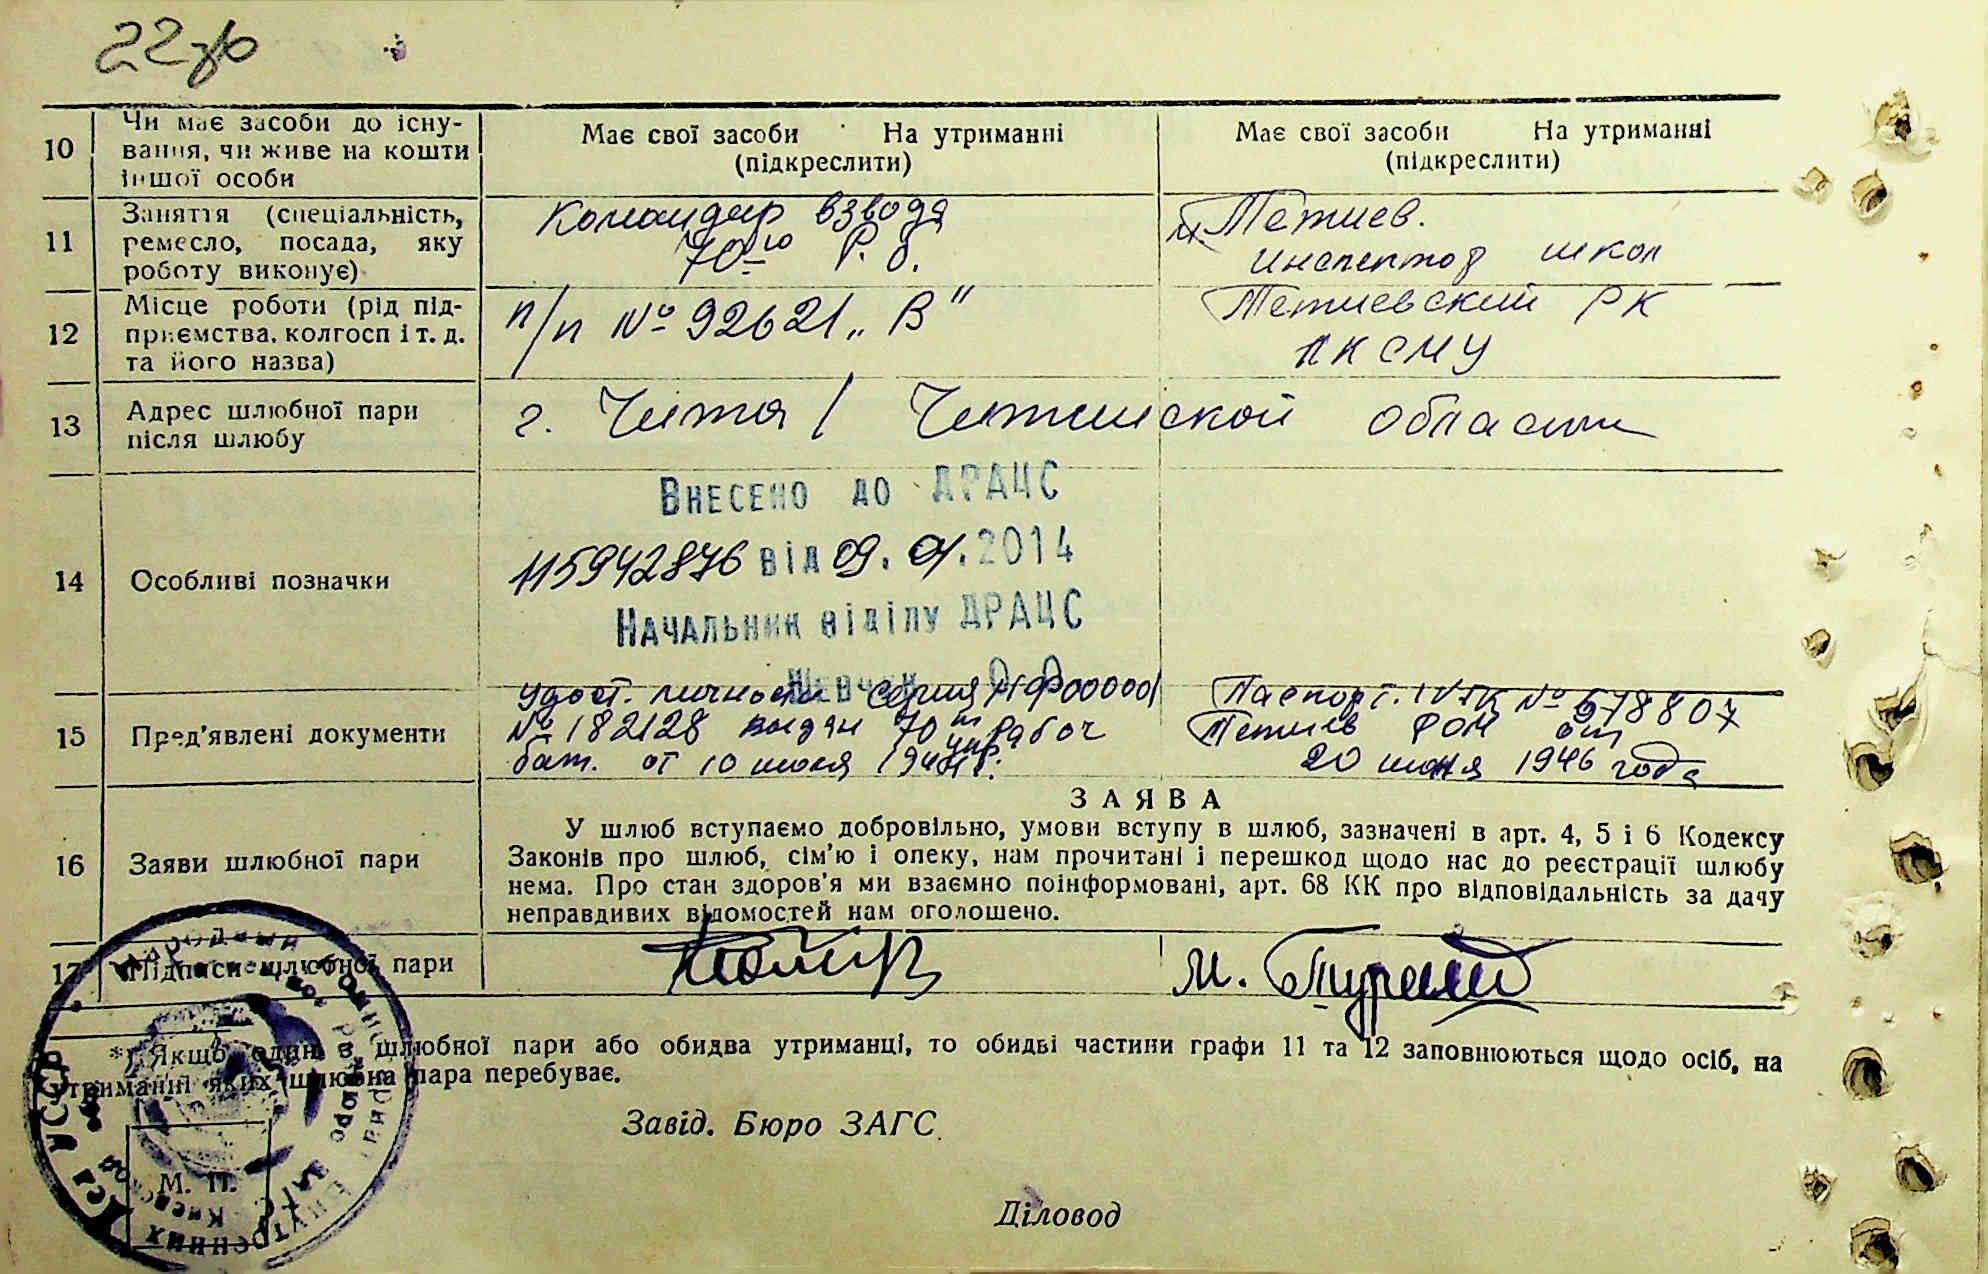 10 Чи має засоби до існу-
вання, чи живе на кошти
іншої особи
Має свої засоби На утриманні
(підкреслити)
Має свої засоби На утриманні
(підкреслити)
11 Заняття (спеціальність,
ремесло, посада, яку
роботу виконує)
Командир взвода
70го Р. б.
м. Тетиев.
инспектор школ
12 Місце роботи (рід під-
приємства, колгосп і т. д.
та його назва)
п/п № 92621 „В"
Тетиевский РК
ЛКСМУ
13 Адрес шлюбної пари
після шлюбу
г. Чита / Читинской области
14 Особливі позначки
Внесено до ДРАЦС
115942876 від 09.01.2014
Начальник відділу ДРАЦС
15 Пред'явлені документи
Удост. личности серия
№ 182128 выдан 70 рабоч
бат. от 10 июля
Паспорт. № 678807
Тетиев РОМ от
20 июня 1946 года
16 Заяви шлюбної пари
ЗАЯВА
У шлюб вступаємо добровільно, умови вступу в шлюб, зазначені в арт. 4, 5 і 6 Кодексу
Законів про шлюб, сім'ю і опеку, нам прочитані і перешкод щодо нас до реєстрації шлюбу
нема. Про стан здоров'я ми взаємно поінформовані, арт. 68 КК про відповідальність за дачу
неправдивих відомостей нам оголошено.
17 Підписи шлюбної пари
М.
*) Якщо один з шлюбної пари або обидва утриманці, то обидві частини графи 11 та 12 заповнюються щодо осіб, на
утриманні яких шлюбна пара перебуває.
Завід. Бюро ЗАГС
М. П.
Діловод